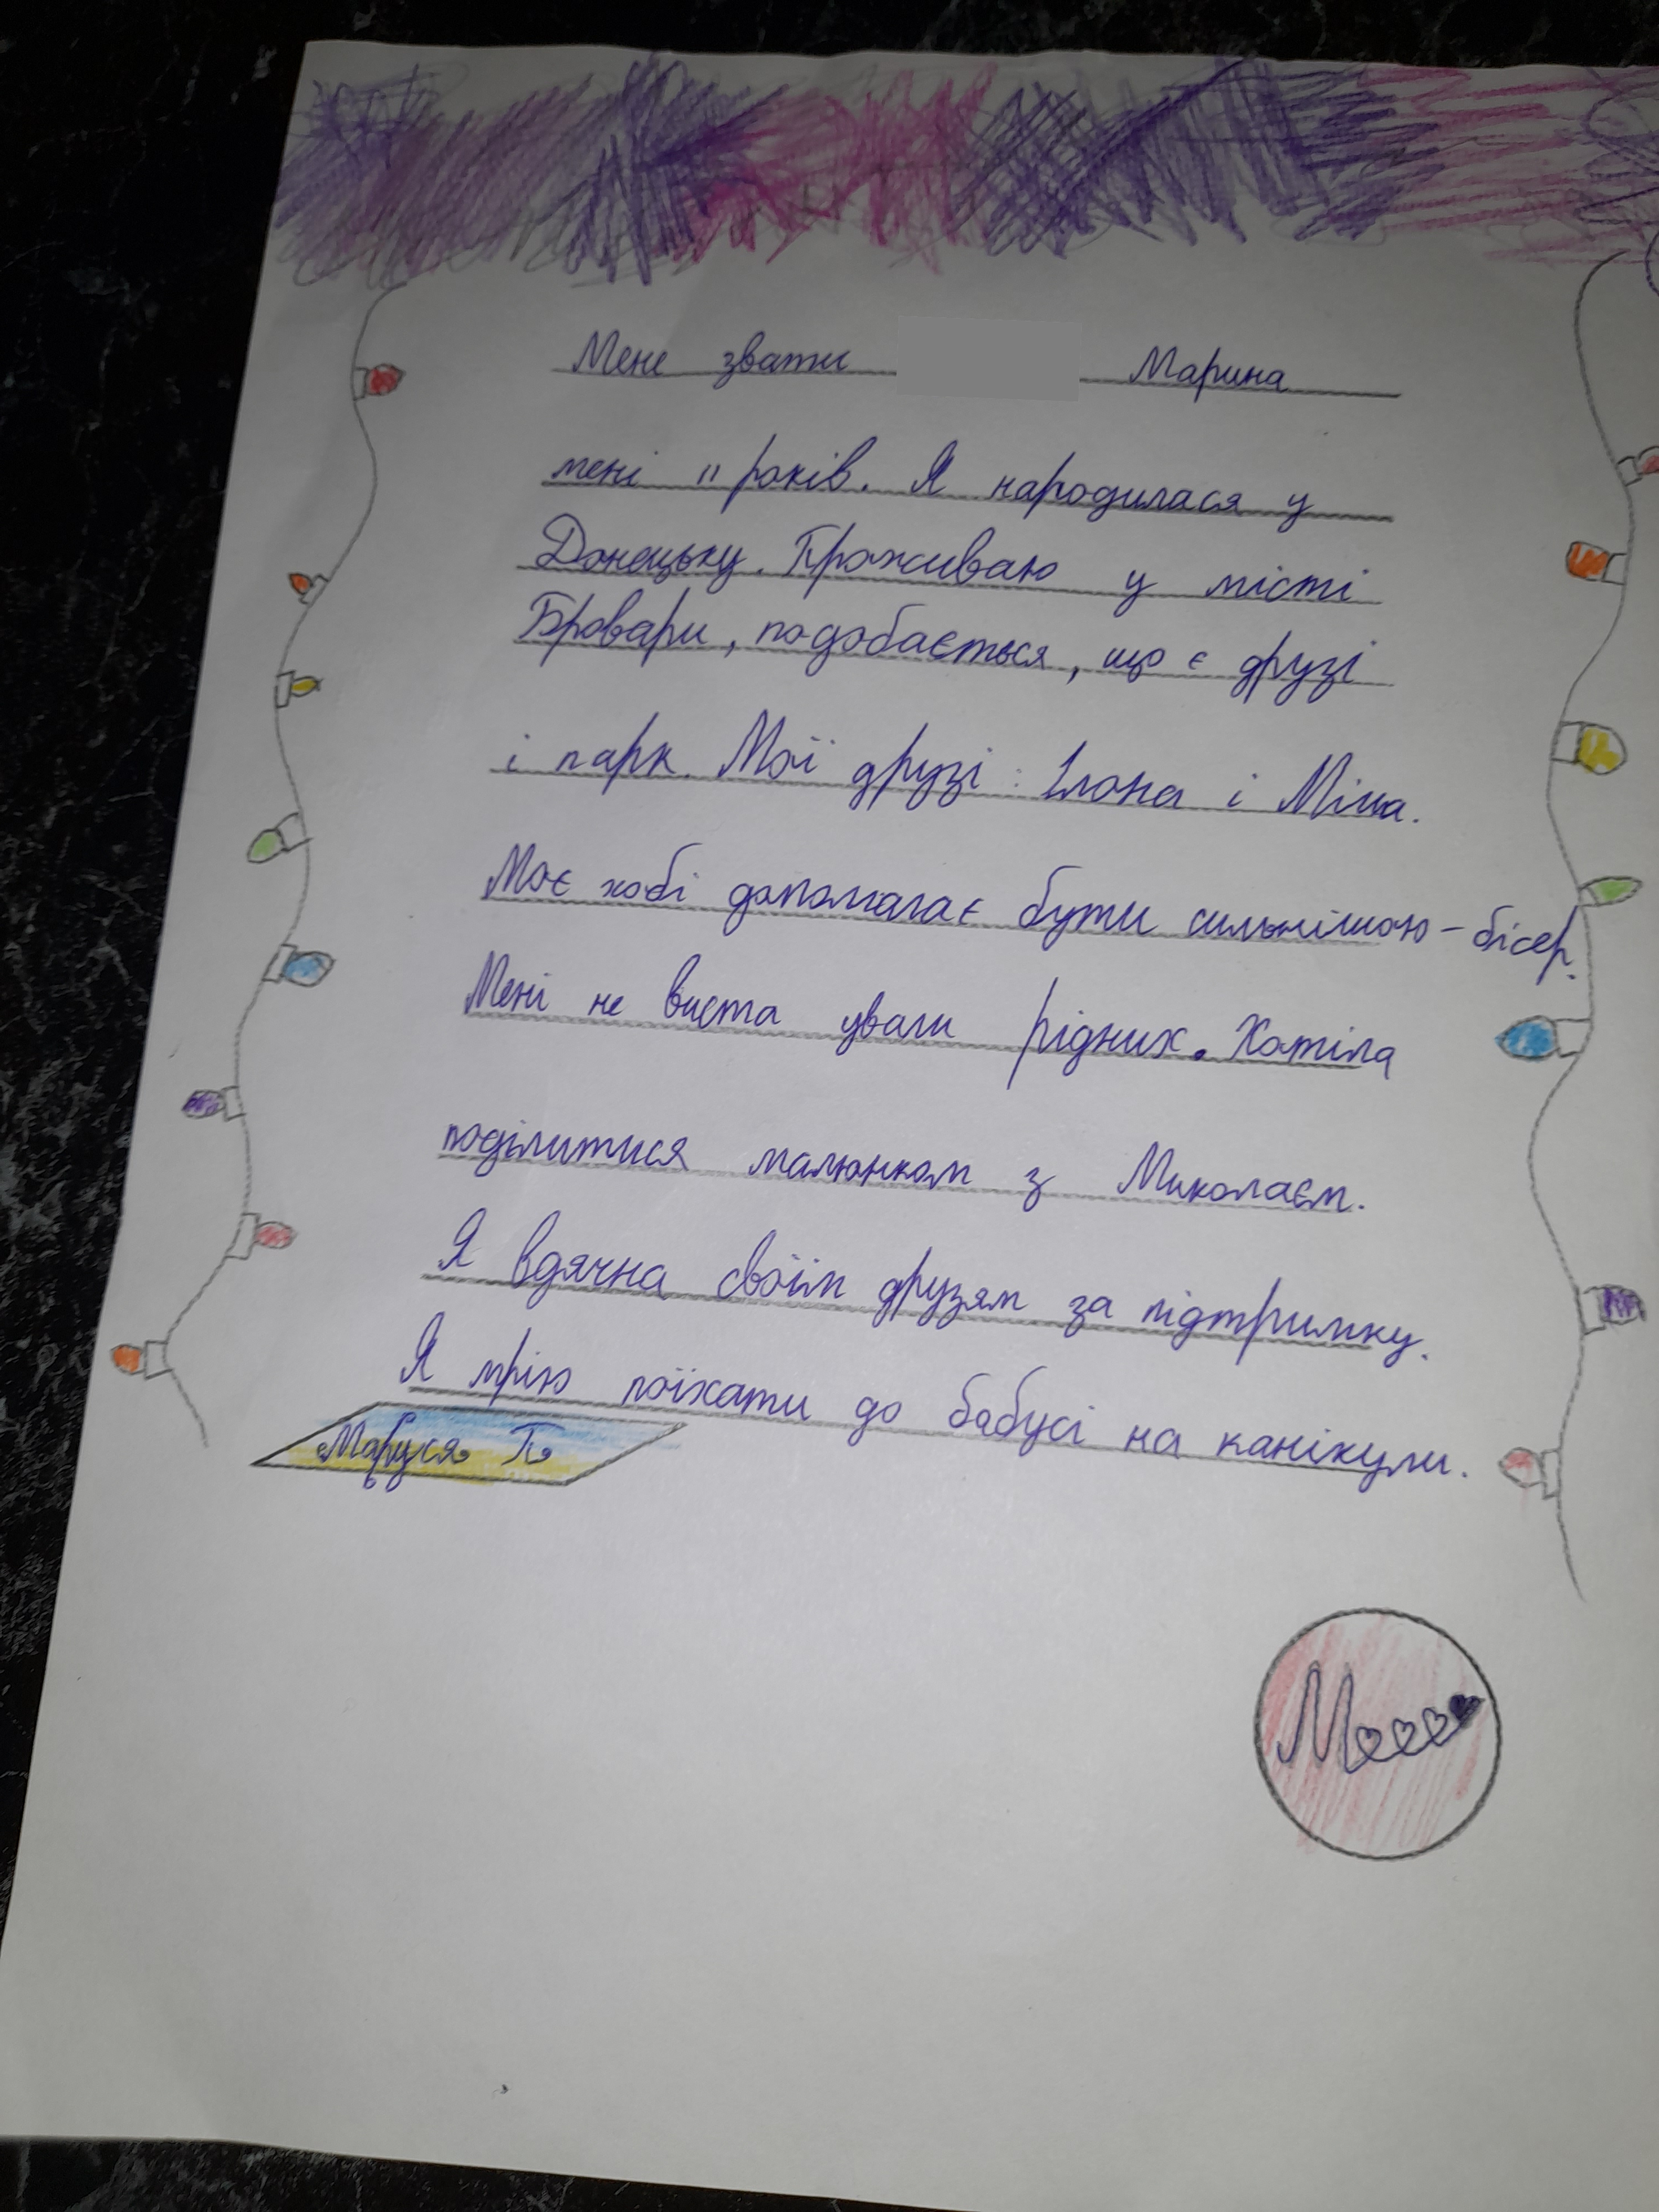 Мене звати Марина
мені 11 років. Я народилася у
Донецьку. Проживаю у місті
Бровари, подобається, що є друзі
і парк. Мої друзі: Ілона і Міша.
Моє хобі допомагає бути сильнішою - бісер.
Мені не виста уваги рідних. Хотіла
поділитися малюнком з Миколаєм.
Я вдячна своїм друзям за підтримку.
Я мрію поїхати до бабусі на канікули.
Маруся П
М